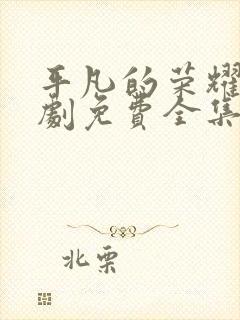 平凡的荣耀
劇免費全集
北栗